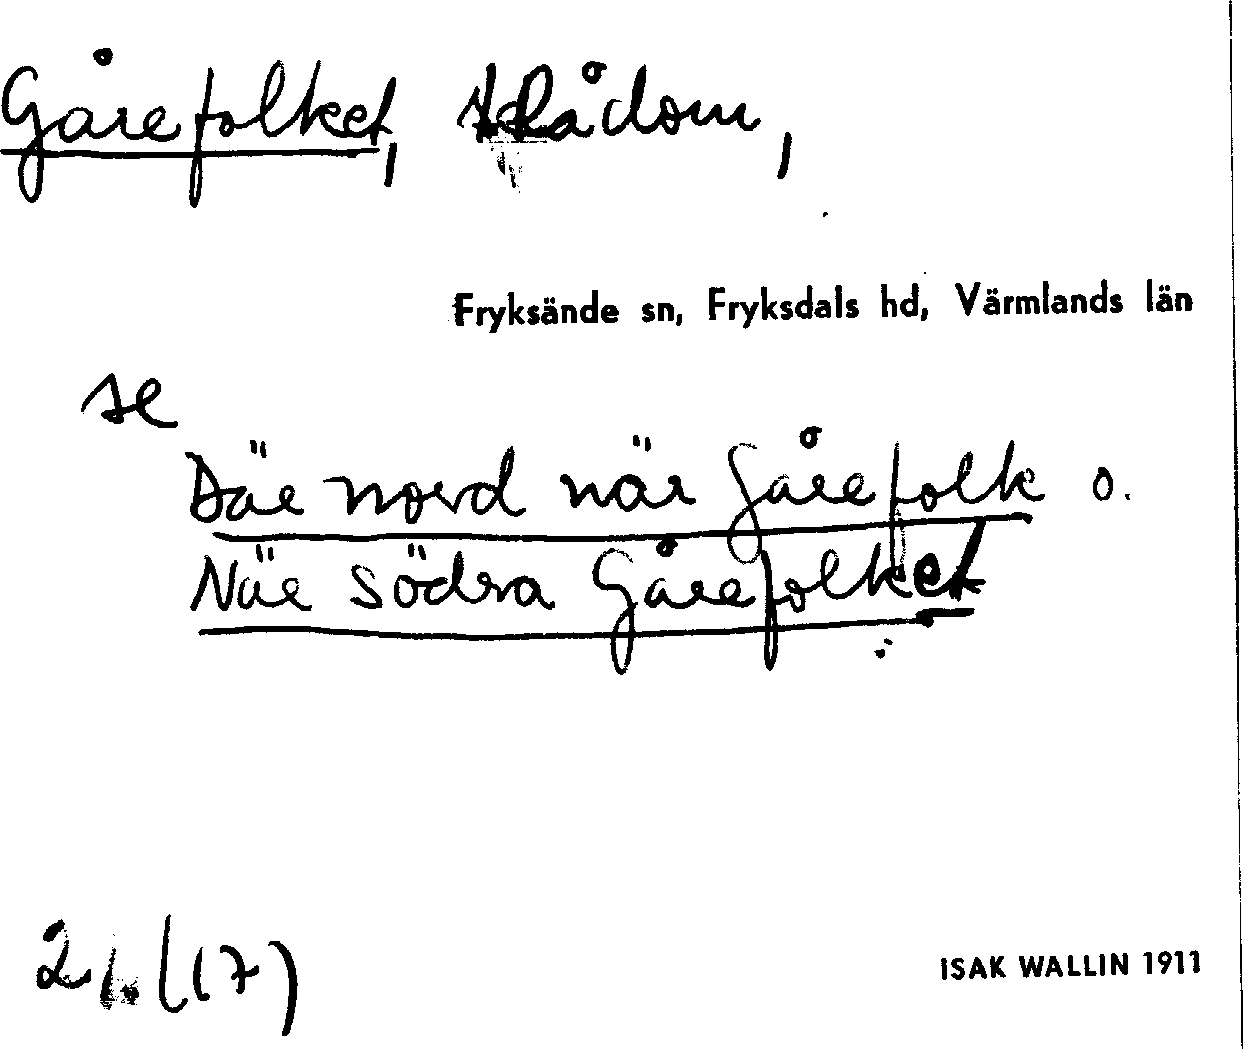 Gårefolket, Rådom,
Fryksände sn, Fryksdals hd, Värmlands län
se
Där nord när gårefolk o.
När södra Gårefolket
21. (17)
ISAK WALLIN 1911